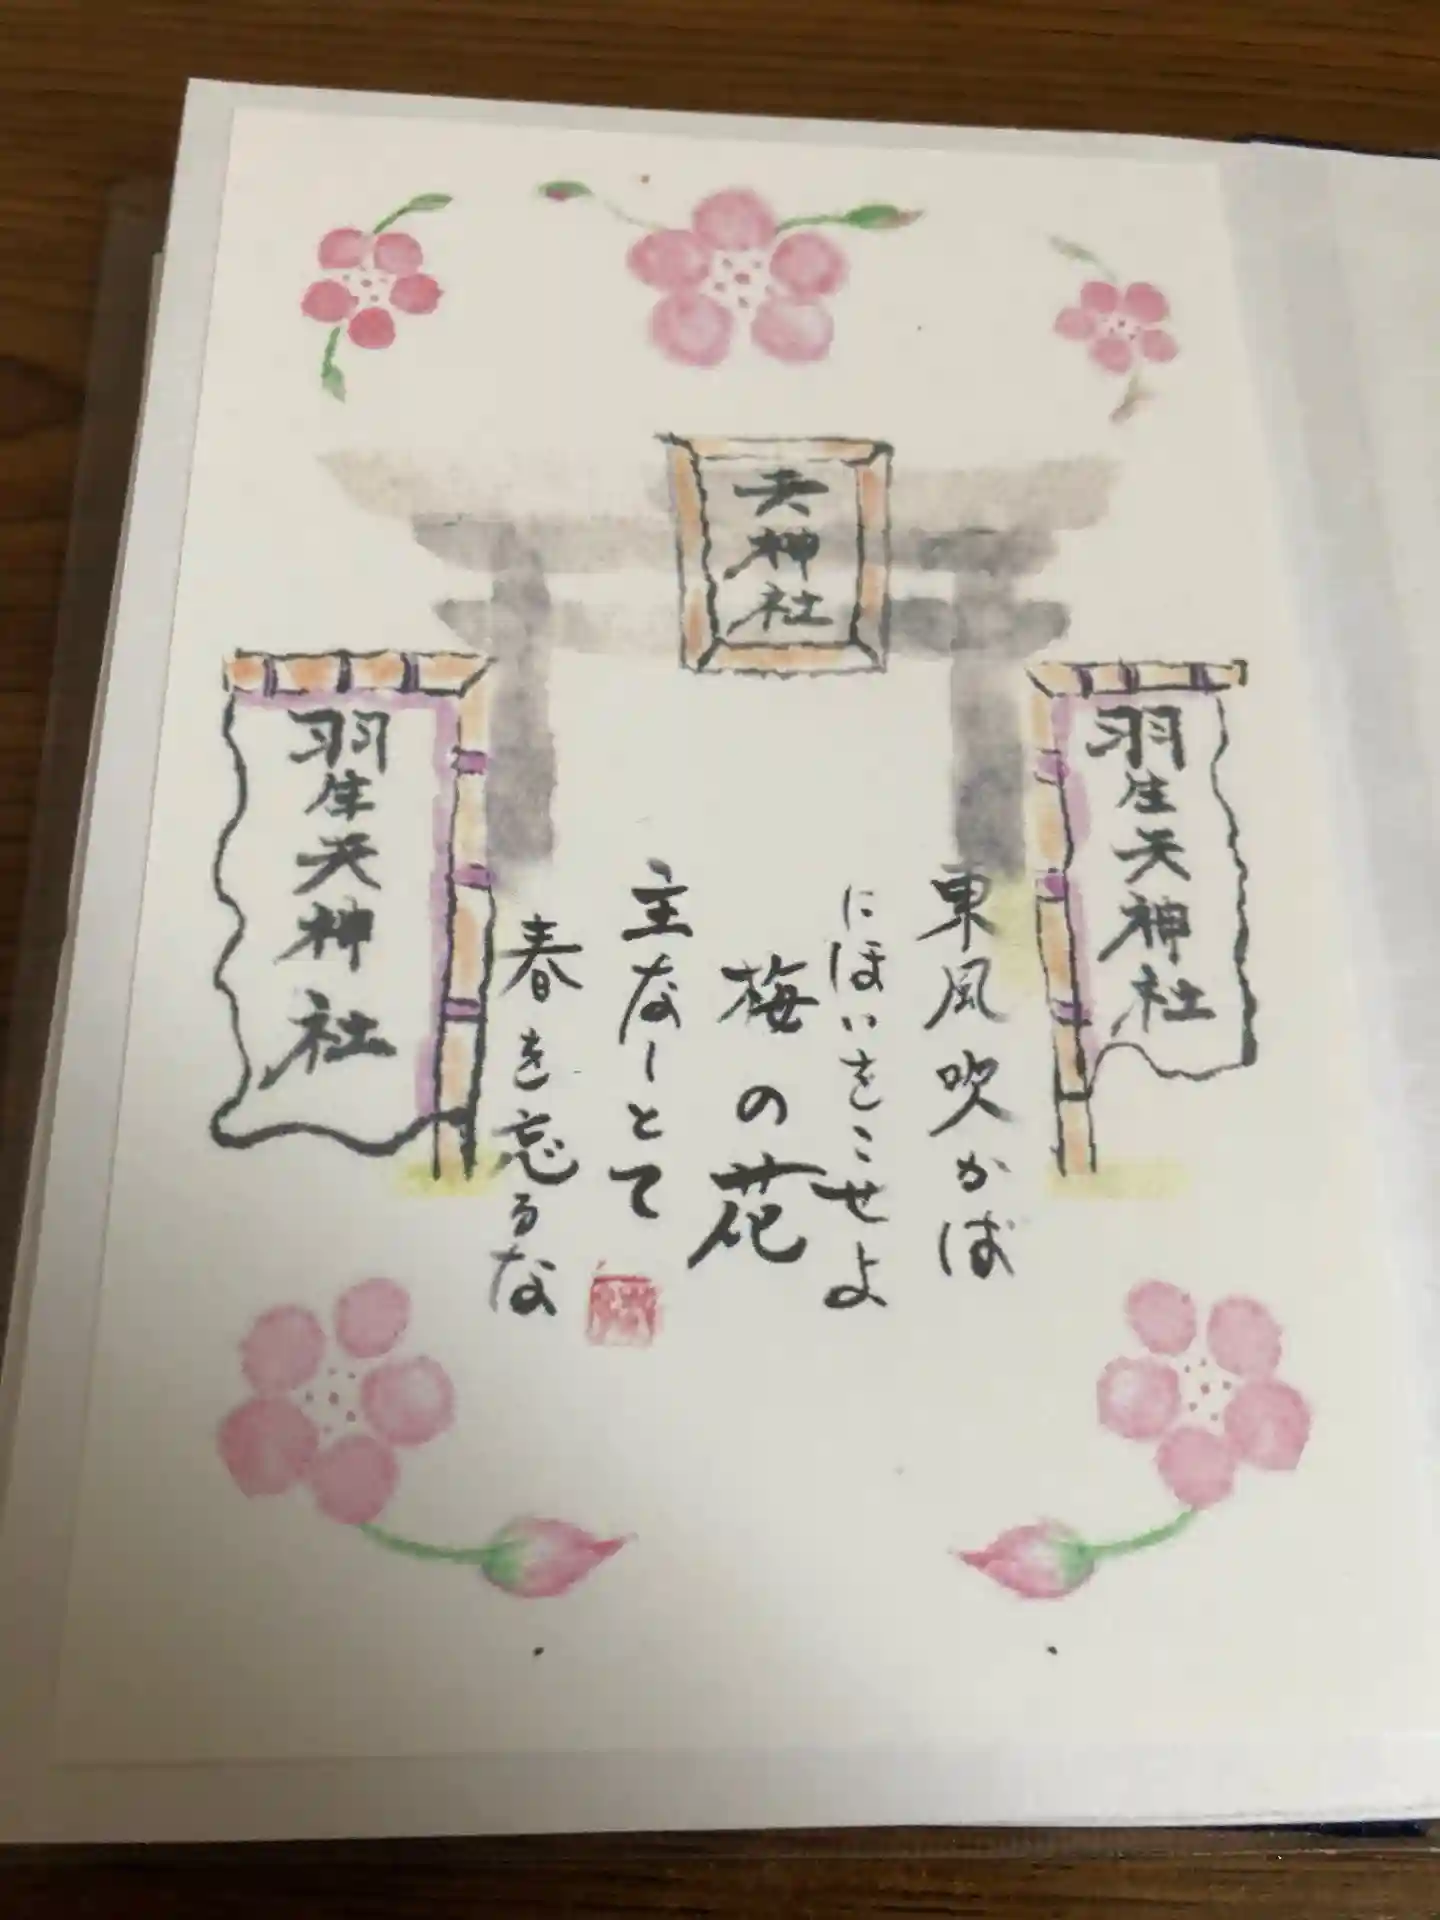 天神社
羽生天神社
東風吹かば
にほいをこせよ
梅の花
主なしとて
春を忘るな
羽生天神社